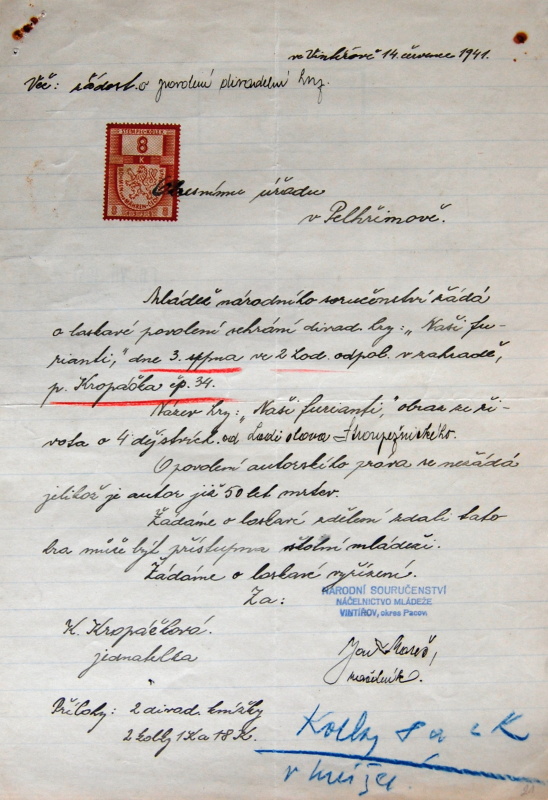 ve Vintířově 14. července 1941.
Věc: žádost o povolení divadelní hry.
STEMPEL-KOLEK
8
K
8 8
Okresnímu úřadu
v Pelhřimově.
Mládež národního souručenství žádá
o laskavé povolení sehrání divad. hry: „Naši fu-
rianti," dne 3. srpna ve 2 hod. odpol. v zahradě,
p. Kropáčka čp. 34.
Název hry: „Naši furianti," obraz ze ži-
vota o 4 dějstvích. od Ladislava Stroupežnického.
O povolení autorského práva se nežádá
jelikož je autor již 50 let mrtev.
Žádáme o laskavé sdělení zdali tato
hra může být přístupna školní mládeži.
Žádáme o laskavé vyřízení.
Za:
NÁRODNÍ SOURUČENSTVÍ
NÁČELNICTVO MLÁDEŽE
VINTÍŘOV, okres Pacov.
K. Kropáčková.
jednatelka
Jan Mareš,
Přílohy: 2 divad. knížky
2 kolky 1 K a 8 K.
Kolky 8 a K
v